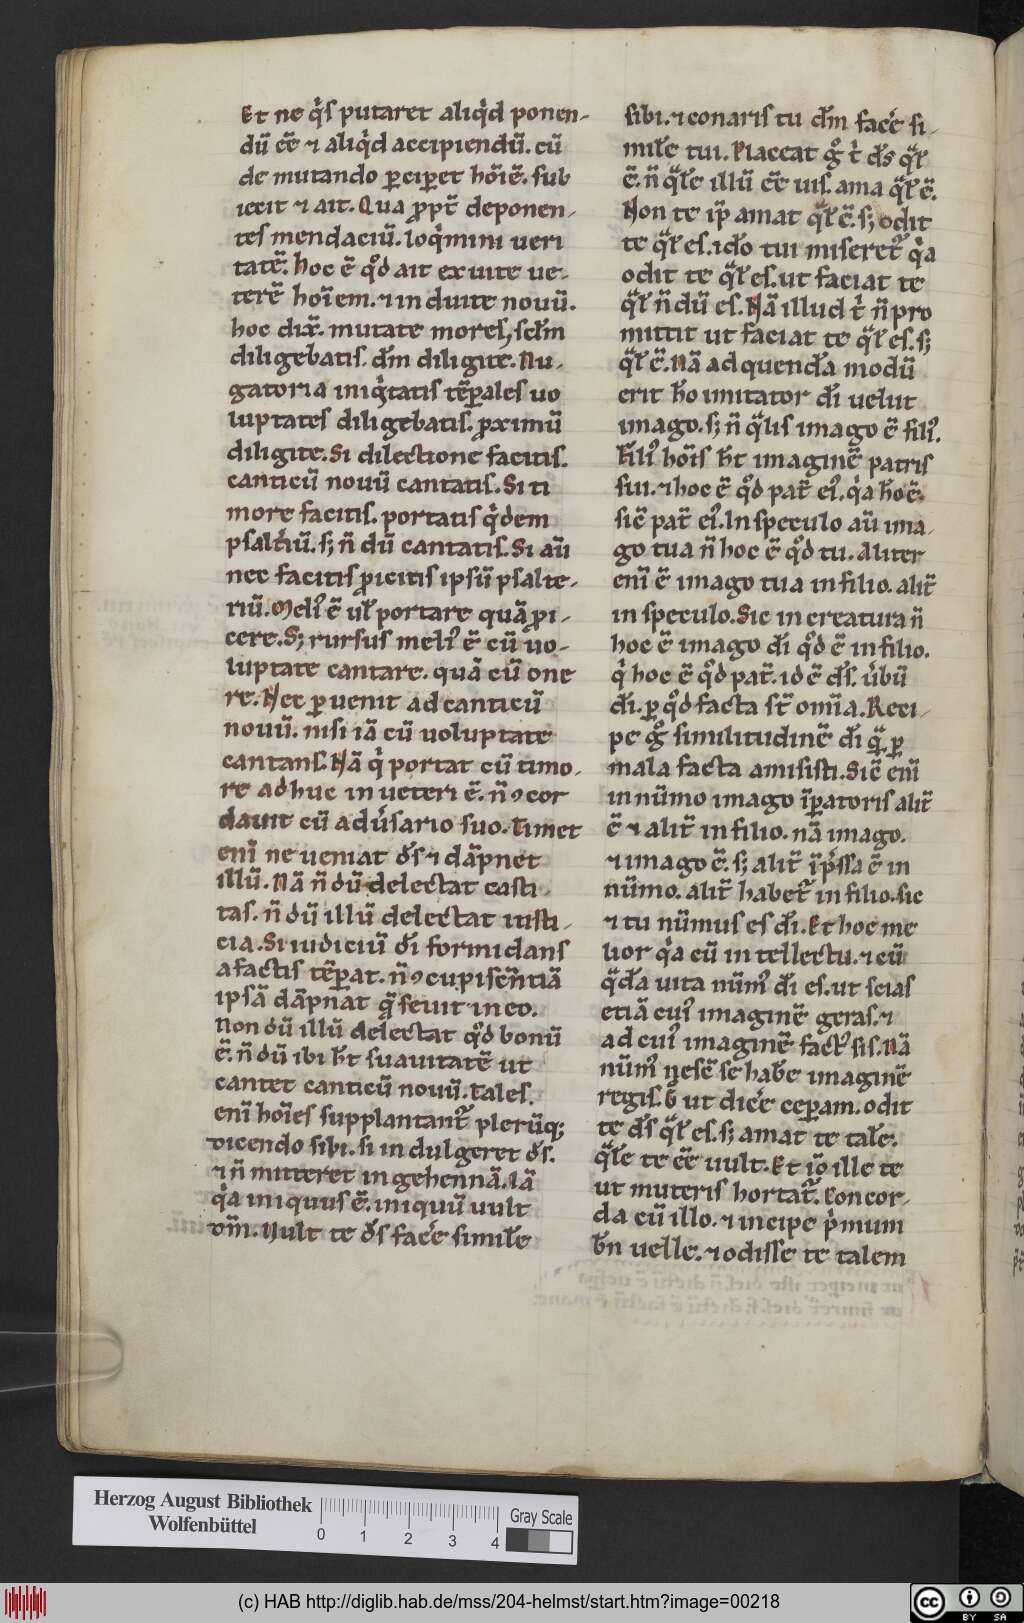 Et ne q̇s putaret aliq̇d ponen-
dū eē ⁊ aliq̇d accipiendū. cū
de mutando ꝑciꝑet hōiē. sub
iecit ⁊ ait. Qua ꝓpt̄ deponen-
tes mendaciū. loq̇mini ueri
tatē. hoc ē qd̊ ait exuite ue-
terē hoīem. ⁊ induite nouū.
hoc dix̄. mutate mores, scd̄m
diligebatis. dm̄ diligite. Nu-
gatoria iniq̇tatis tēꝑales uo
luptates diligebatis. ꝓximū
diligite. Si dilectione facitis.
canticū nouū cantatis. Si ti
more facitis. portatis q̇dem
psaltiū. s; n̄ dū cantatis. Si aū
nec facitis ꝓicitis ipsū psalte-
riū. Meli᷒ ē uł portare quā ꝓi-
cere. S; rursus meli᷒ ē cū uo-
luptate cantare. quā cū one
re. Nec ꝑuenit ad canticū
nouū. nisi iā cū uoluptate
cantans. Nā q̇ portat cū timo-
re adhuc in ueteri ē. n̄ ꝯcor
dauit cū adu̇sario suo. Timet
enī ne ueniat ds̄ ⁊ dāpnet
illū. Nā n̄dū delectat casti-
tas. n̄dū illū delectat iusti-
cia. Si iudiciū dī formidans
a factis tēꝑat. n̄ ꝯcupiscentiā
ipsā dāpnat q̄ seuit in eo.
Non dū illū delectat qd̊ bonū
ē. n̄dū ibi ht̄ suauitatē ut
cantet canticū nouū. Tales
enī hoīes supplantant᷑ plerūq;
dicendo sibi. si indulgeret ds̄.
⁊ n̄ mitteret in gehennā. Iā
q̇a iniquus ē. iniquū uult
dm̄. Uult te ds̄ facē simile
sibi. ⁊ conaris tu dm̄ facē si-
mile tui. Placeat g̊ t̄ ds̄ qł
ē. n̄ qłe illū eē uis. ama qł ē.
Non te ip̄ amat qł ē. s; odit
te qł es. ido tui miseret᷑ q̇a
odit te qł es. ut faciat te
qł n̄dū es. Nā illud t̄ n̄ pro
mittit ut faciat te qł es. s;
qł ē. Nā ad quendā modū
erit ho imitator dī uelut
imago. s; n̄ qłis imago ē fili᷒.
Fili᷒ hoīs ht̄ imaginē patris
sui. ⁊ hoc ē qd̊ pat̄ ei᷒. q̇a ho ē.
sic ē pat̄ ei᷒. In speculo aū ima-
go tua n̄ hoc ē qd̊ tu. Aliter
enī ē imago tua in filio. alit̄
in speculo. Sic in creatura n̄
hoc ē imago dī qd̊ ē in filio.
q̇ hoc ē qd̊ pat̄. id ē ds̄. u̇bū
dī. ꝑ qd̊ facta st̄ omīa. Reci-
pe g̊ similitudinē dī q̄ ꝑ
mala facta amisisti. Sic ē enī
in nūmo imago īꝑatoris alit̄
ē ⁊ alit̄ in filio. nā imago.
⁊ imago ē. s; alit̄ īpressa ē in
nūmo. alit̄ habet᷑ in filio. sic
⁊ tu nūmus es dī. Et hoc me
lior q̇a cū intellectu. ⁊ cū
qdā uita nūm᷒ dī es. ut scias
etiā cui᷒ imaginē geras. ⁊
ad cui᷒ imaginē fact᷒ sis. Nā
nūm᷒ nescē se habe imaginē
regis. Ḡ ut dicē ceperam. odit
te ds̄ qł es. s; amat te tałe.
qłe te eē uult. Et iō ille te
ut muteris hortat᷑. Concor-
da cū illo. ⁊ incipe p̄mum
bn̄ uelle. ⁊ odisse te talem
Herzog August Bibliothek
Wolfenbüttel
0 1 2 3 4
Gray Scale
(c) HAB http://diglib.hab.de/mss/204-helmst/start.htm?image=00218
cc BY SA